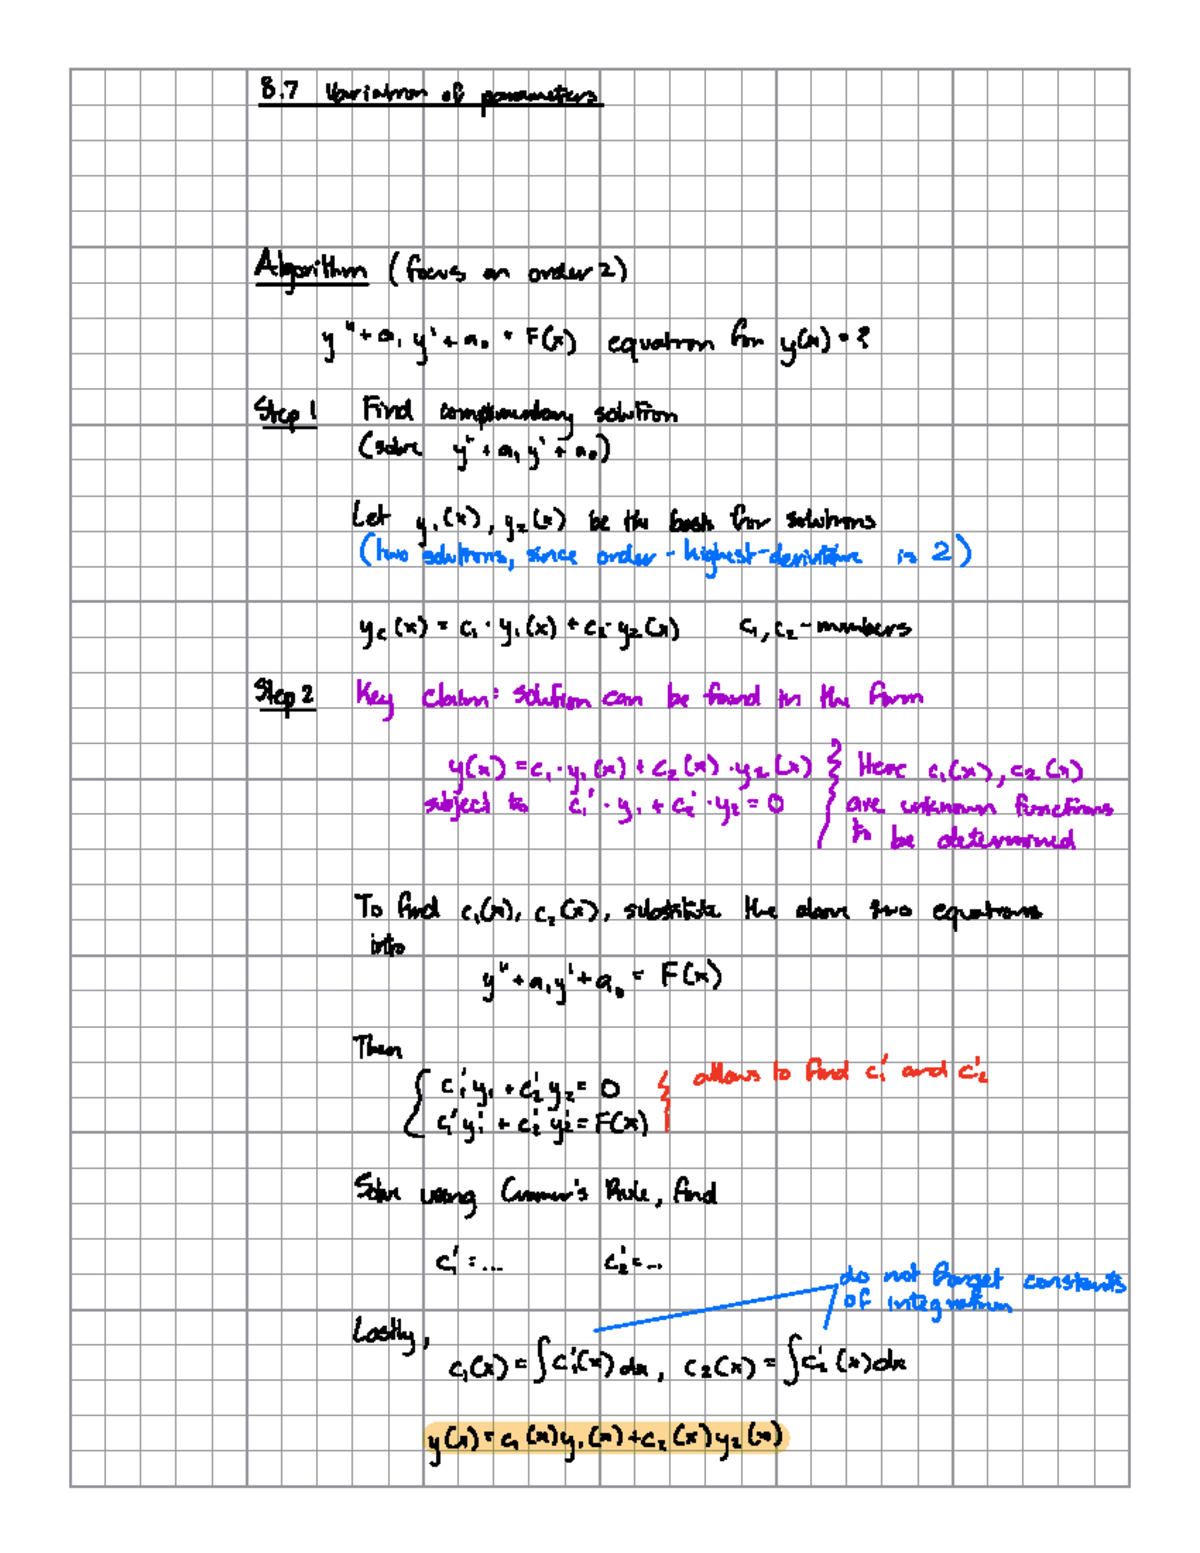 8.7 Variation of parameters
Algorithm (focus on order 2)
y'' + a₁ y' + a₀ = F(x) equation for y(x) = ?
Step 1 Find complimentary solution
(solve y'' + a₁ y' + a₀)
Let y₁(x), y₂(x) be the basis for solutions
(two solutions, since order - highest-derivitive is 2)
y_c(x) = c₁ · y₁(x) + c₂ · y₂(x) c₁, c₂ - numbers
Step 2 Key claim: solution can be found in the form
y(x) = c₁ · y₁(x) + c₂(x) · y₂(x) } Here c₁(x), c₂(x)
subject to c₁' · y₁ + c₂' · y₂ = 0 are unknown functions
to be determined
To find c₁(x), c₂(x), substitute the above two equations
into
y'' + a₁y' + a₀ = F(x)
Then
{ c₁'y₁ + c₂'y₂ = 0 } allows to find c₁' and c₂'
c₁'y₁' + c₂'y₂' = F(x)
Solve using Cramer's Rule, find
c₁' = ... c₂' = ...
do not forget constants
of integration
Lastly,
c₁(x) = ∫c₁'(x) dx, c₂(x) = ∫c₂'(x)dx
y(x) = c₁(x)y₁(x) + c₂(x)y₂(x)